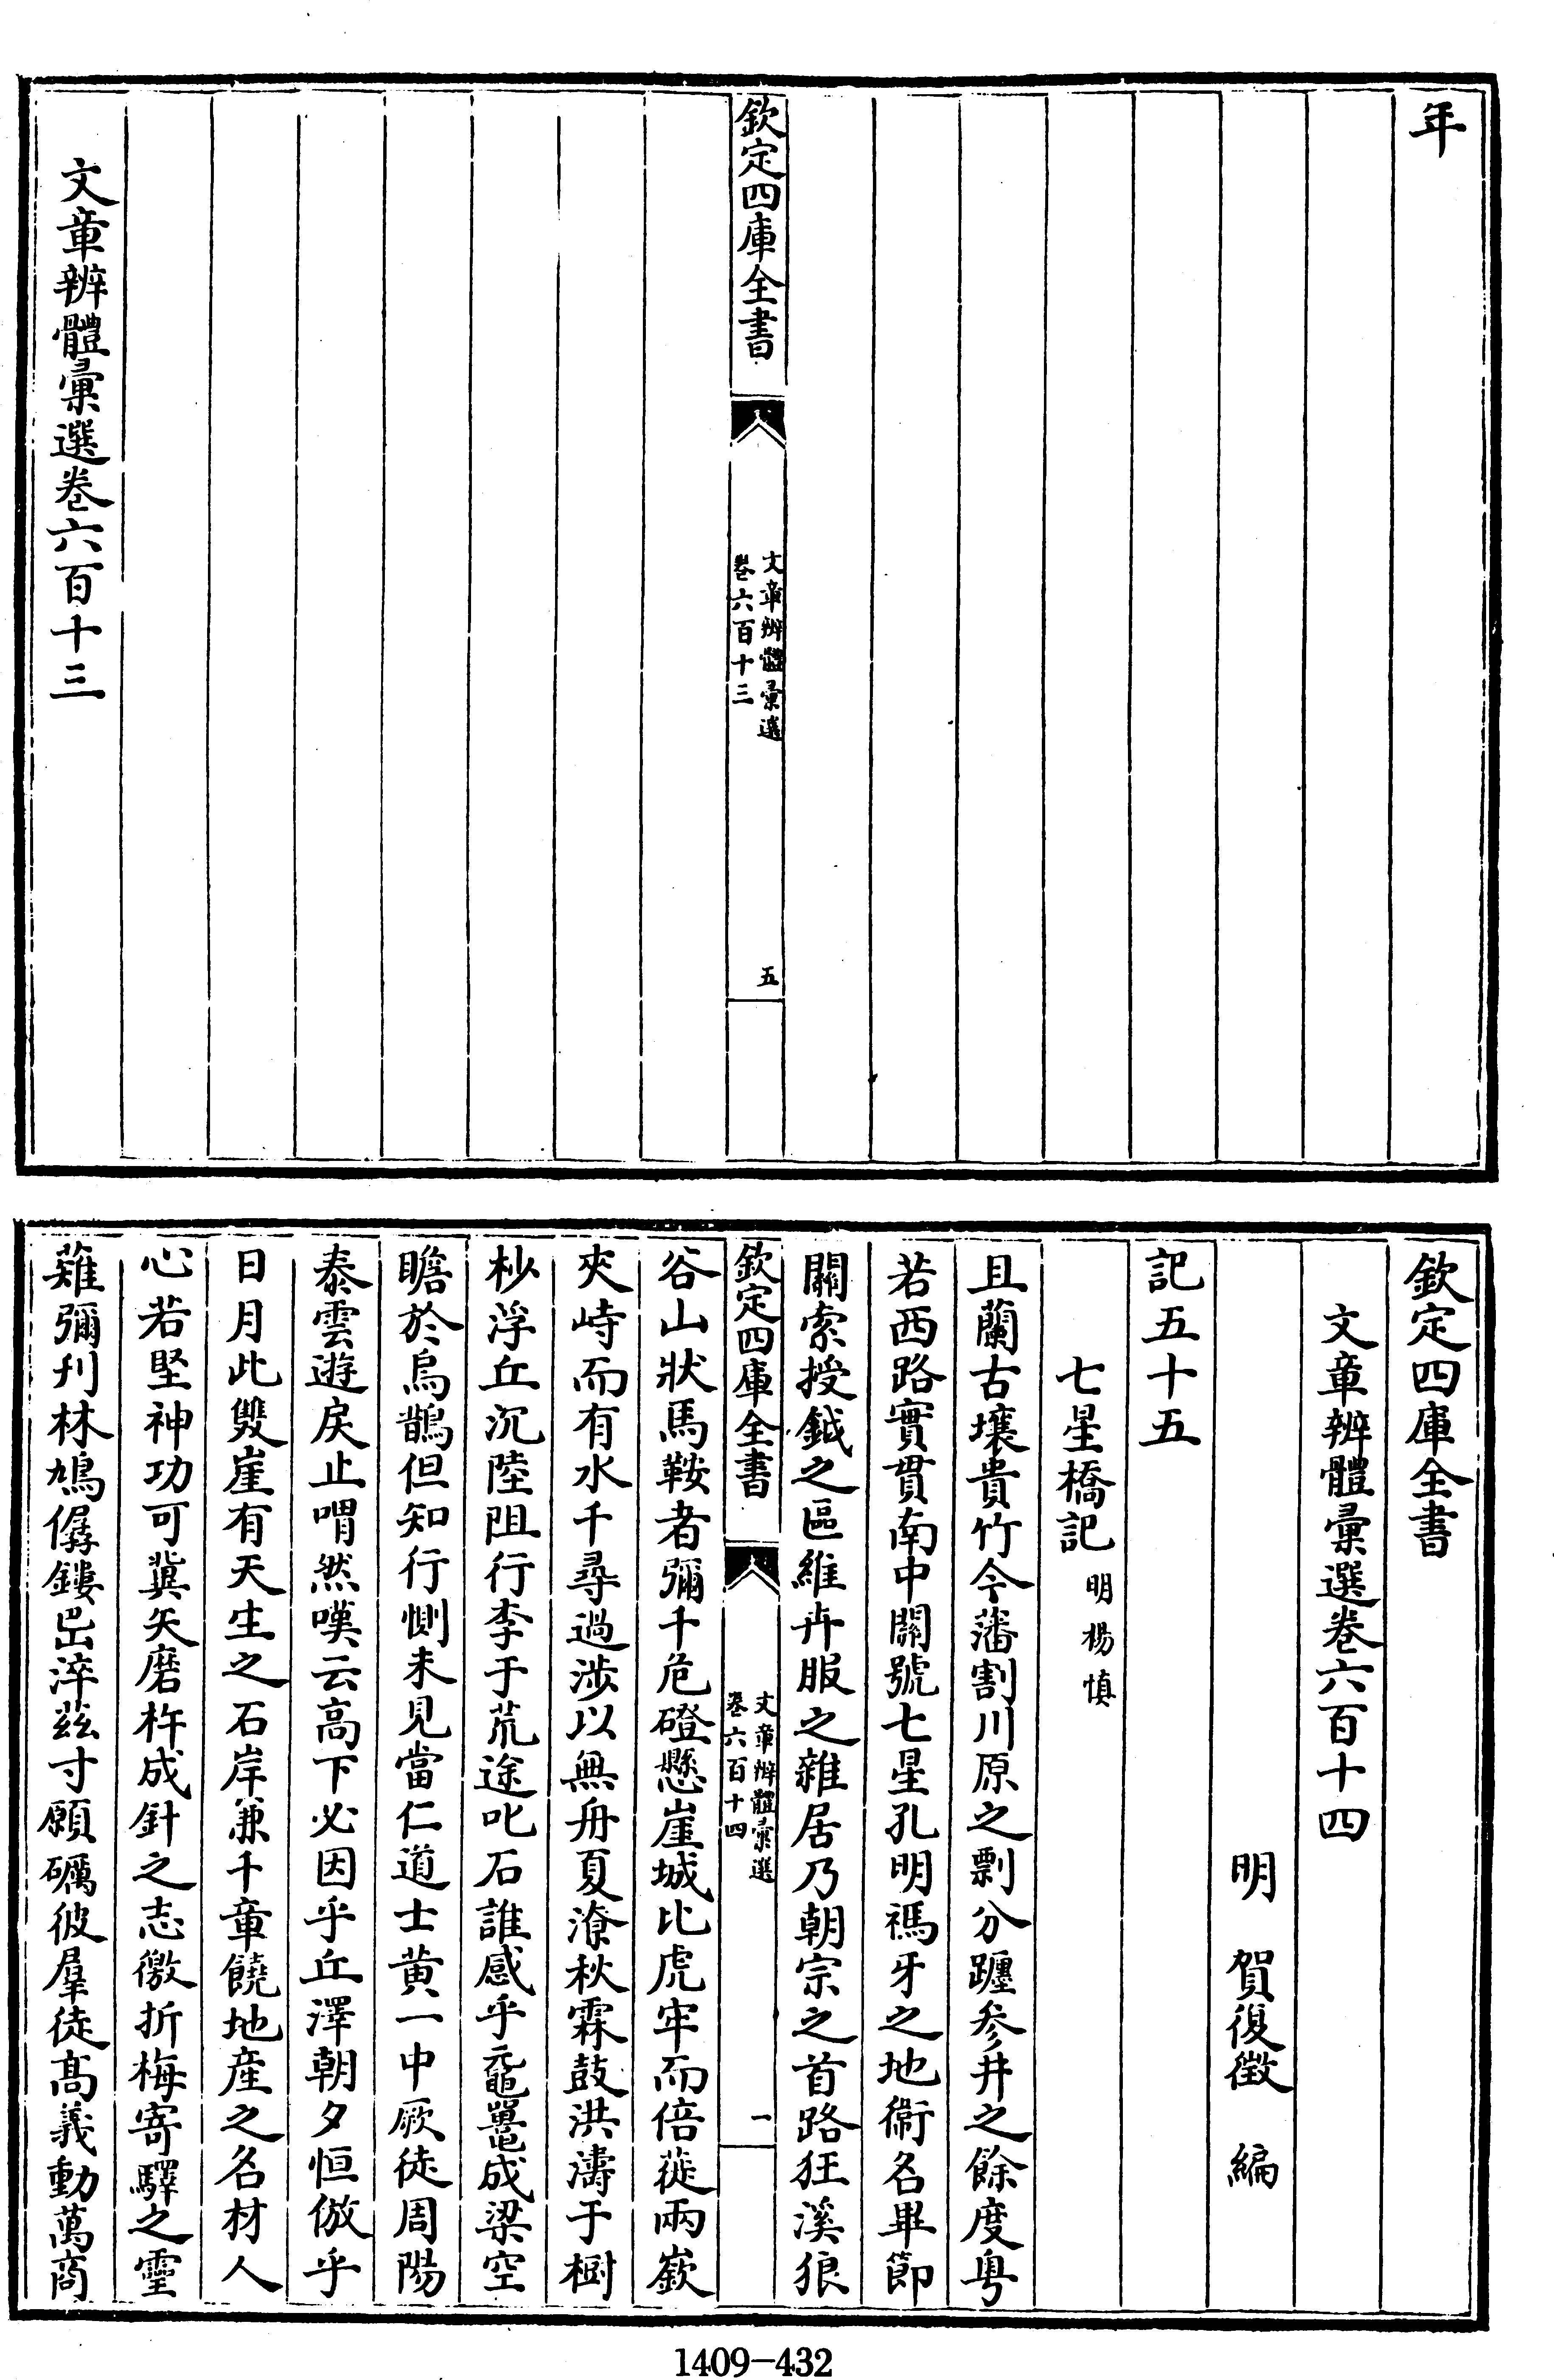 年
欽定四庫全書
文章辨體彙選
卷六百十三
五
文章辨體彙選卷六百十三
欽定四庫全書
文章辨體彙選卷六百十四
明 賀復徵 編
記五十五
七星橋記 明楊慎
且蘭古壤貴竹今藩割川原之剽分躔参井之餘度粤
若西路實貫南中關號七星孔明禡牙之地衞名畢節
關索授鉞之區維卉服之雜居乃朝宗之首路狂溪狼
欽定四庫全書
文章辨體彙選
卷六百十四
一
谷山狀馬鞍者彌千危磴懸崖城比虎牢而倍蓰兩嶔
夾峙而有水千尋過涉以無舟夏潦秋霖鼓洪濤于樹
杪浮丘沉陸阻行李于荒途叱石誰感乎黿鼉成梁空
瞻於烏鵲但知行惻未見當仁道士黄一中厥徒周陽
泰雲遊戾止喟然嘆云高下必因乎丘澤朝夕恒倣乎
日月此雙崖有天生之石岸兼千章饒地産之名材人
心若堅神功可冀矢磨杵成針之志徼折梅寄驛之靈
薙彌刋林鳩僝鏤岀淬兹寸願礪彼羣徒髙義動萬商
1409-432